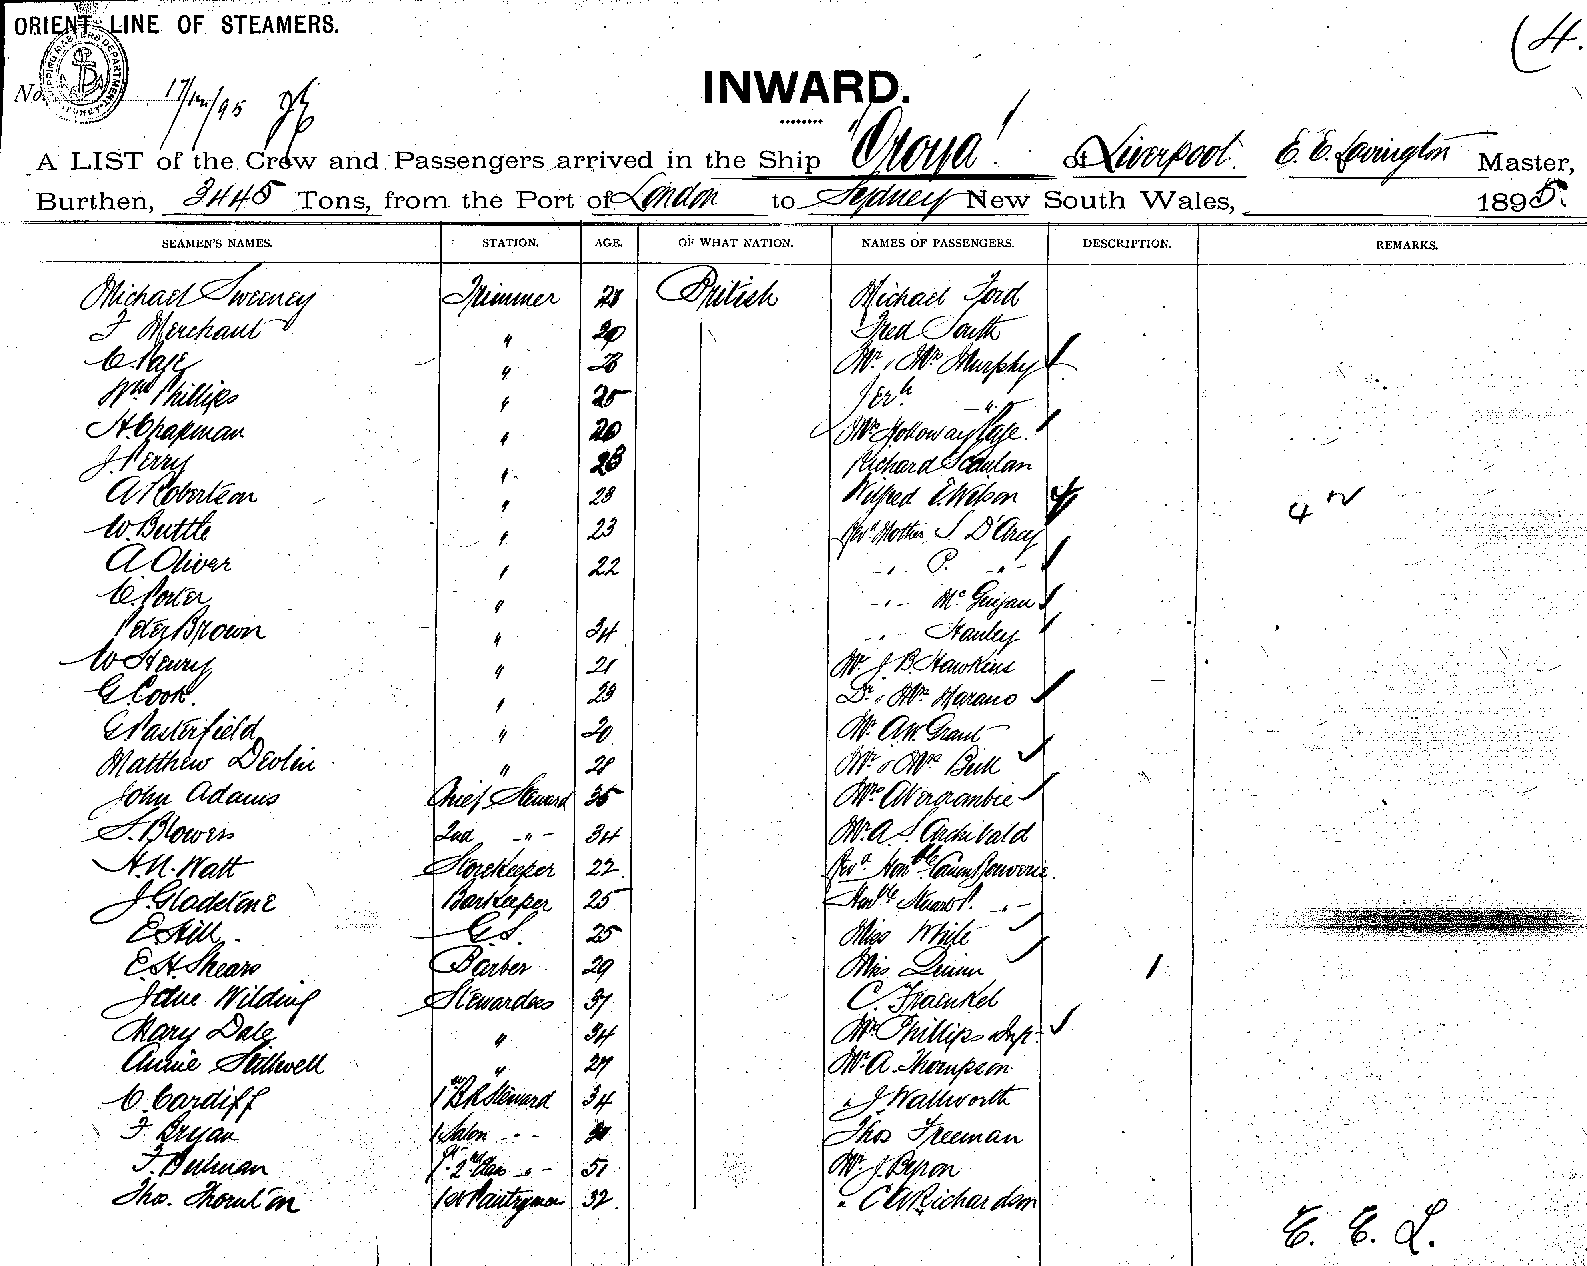 ORIENT LINE OF STEAMERS.
(4.
No. 17/12/95
INWARD.
A LIST of the Crew and Passengers arrived in the Ship "Oroya" of Liverpool. E. E. Lavington Master,
Burthen, 3445 Tons, from the Port of London to Sydney New South Wales, 1895.
SEAMEN'S NAMES. STATION. AGE. OF WHAT NATION. NAMES OF PASSENGERS. DESCRIPTION. REMARKS.
Michael Sweeney Trimmer British Michael Ford
F Merchant " Fred South
" Mr & Mrs Murphy
Wm Phillips " 25 "
H. Chapman " 20 Mr Holloway
J. Perry " Richard Scanlan
A Robertson " 23 Wilfred
W. Buttle " 23 Revd Mother S D'Arcy
A Oliver " 22 " P. "
C. Porter " "
Peter Brown " 24 " Stanley
W Henry " 21 Mr J B Hawkins
G. Cook. " 23 Dr & Mrs Marano
" 20 Mr A W Grant
Matthew Devlin " 28 Mr & Mrs
John Adams Chief Steward 35 Mrs Abercrombie
S. Blowers 2nd " 34 Mr A S Archibald
H. N. Watt Storekeeper 22 Revd Honble
J. Gladstone Barkeeper 25 Honble "
E Hill. G.S. 25 Miss White
E. H. Shears Barber 29 Miss Quinn
Jane Wilding Stewardess 37 C. Fraenkel
Mary Dale " 34 Mr Phillips
Annie Stillwell " 27 Mr A. Thompson
C. Cardiff 1st B R Steward 34 " J Wallworth
F Bryan 1 Salon " Thos Freeman
1st 2nd Class " 51 Mr J. Byron
Tho. Thornton 1st Pantryman 32 " C W Richardson
E. E. L.